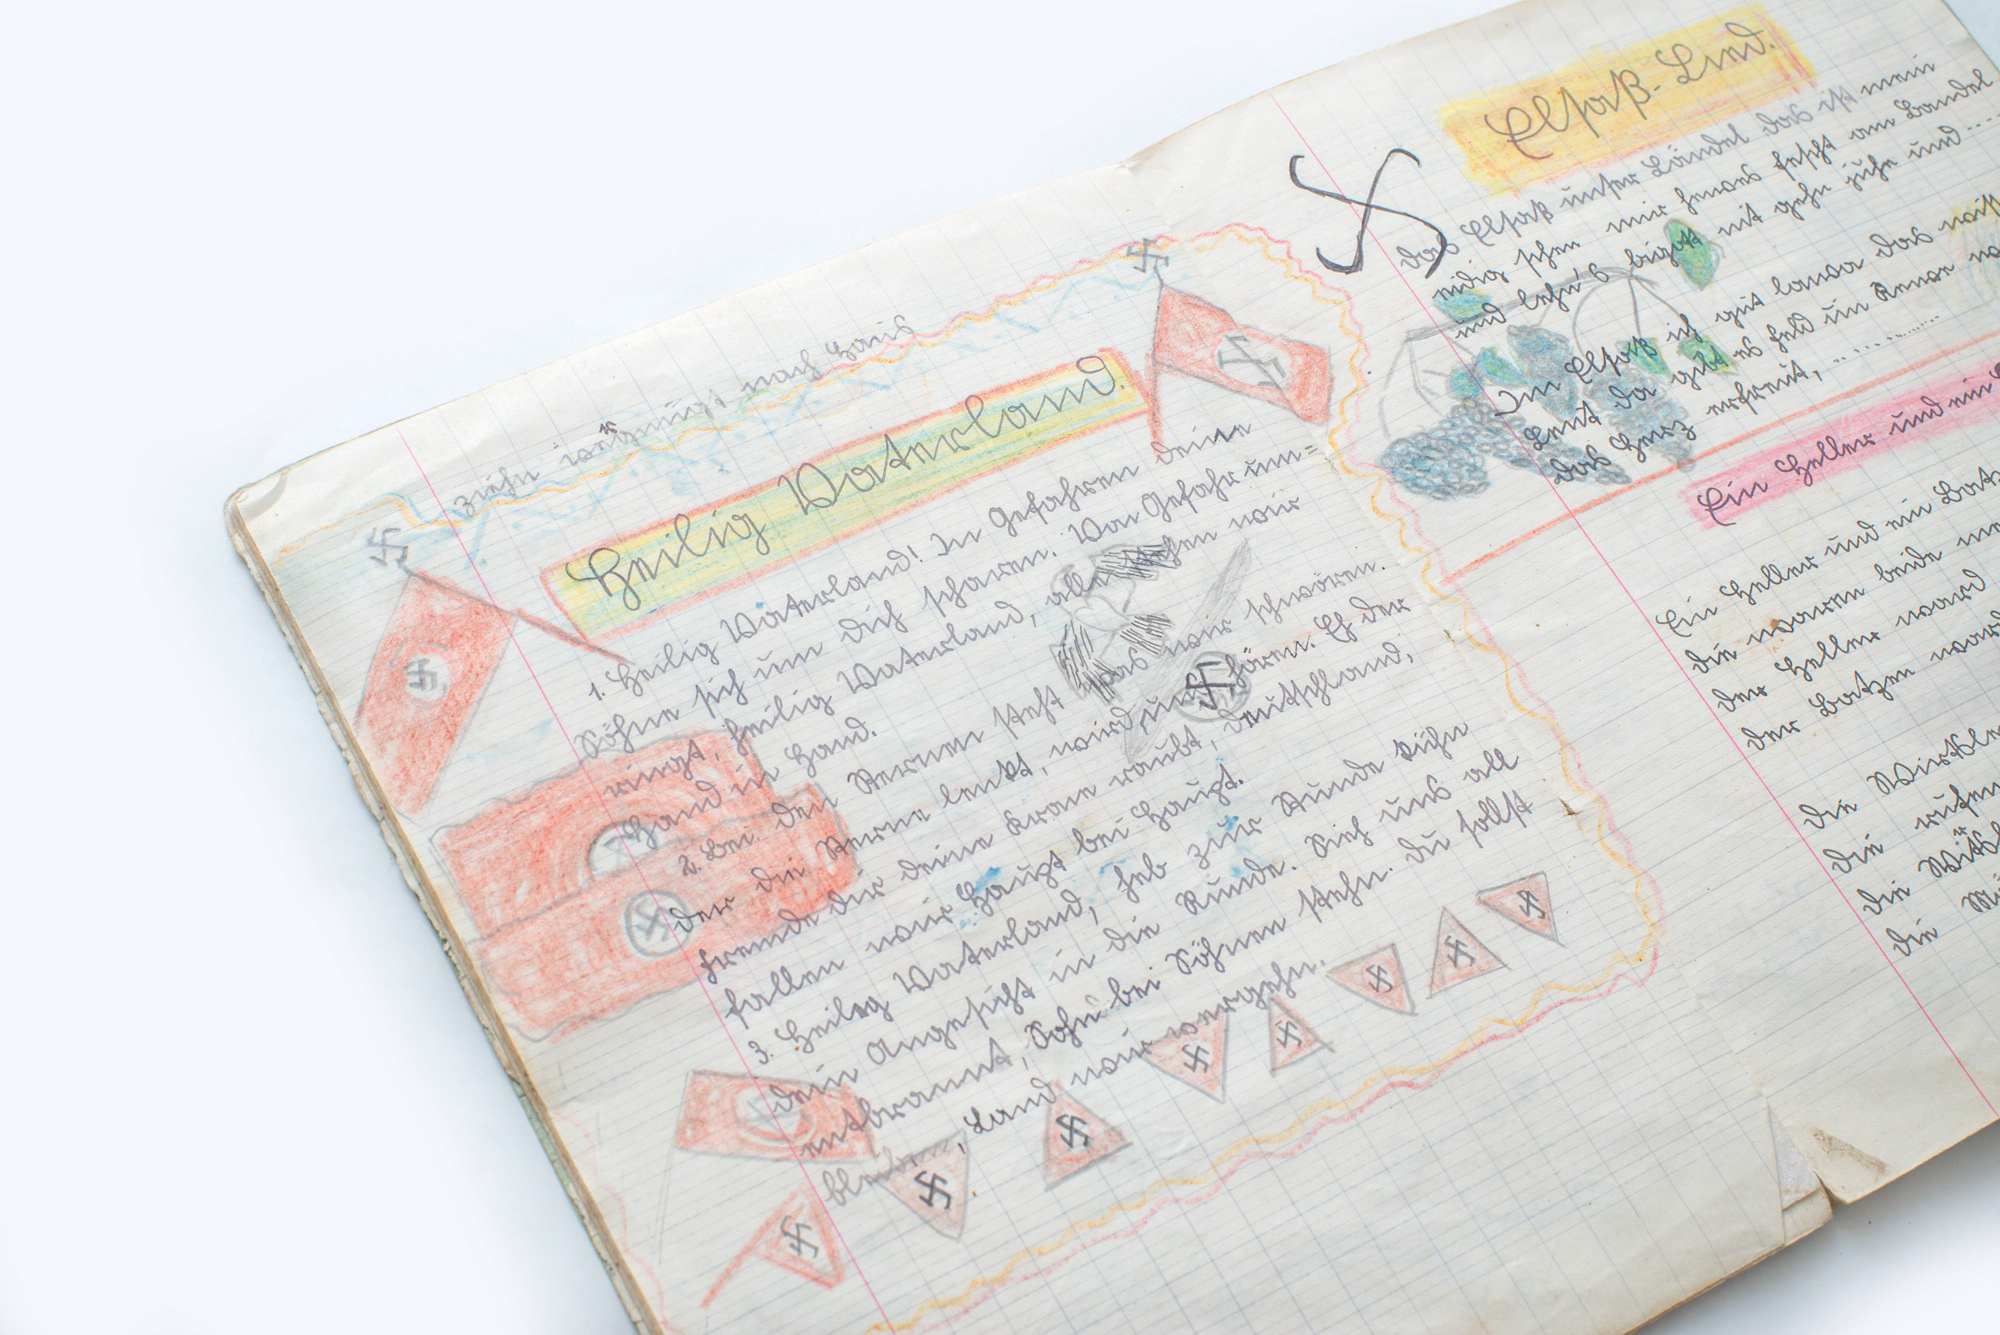 ziehn vergnügt nach Haus
Heilig Vaterland.
1. Heilig Vaterland! In Gefahren deine
Söhne sich um dich scharen. Von Gefahr um=
ringt, heilig Vaterland, alle stehen wir
Hand in Hand.
2. Bei den Sternen steht was wir schwören.
Der die Sterne lenkt, wird uns hören. Eh der
Fremde dir deine Krone raubt, Deutschland,
fallen wir Haupt bei Haupt.
3. Heilig Vaterland, heb zur Stunde kühn
dein Angesicht in die Runde. Sieh uns all
entbrannt, Sohn bei Söhnen stehn. Du sollst
bleiben, Land wir vergehn.
Elsaß-Lied.
Das Elsaß unser Ländel das ist mein
eidig schen mir hewes fescht am Bandel
und lehn's bigott nit gehn juhe und ....
Im Elsaß isch gut lawa das
Leut da gibt es Feld un Rewe
das Herz erfreut, ..........
Ein Heller und ein
Ein Heller und ein
die waren beide
der Heller ward
der Batzen ward
Die
die rufen
die
die